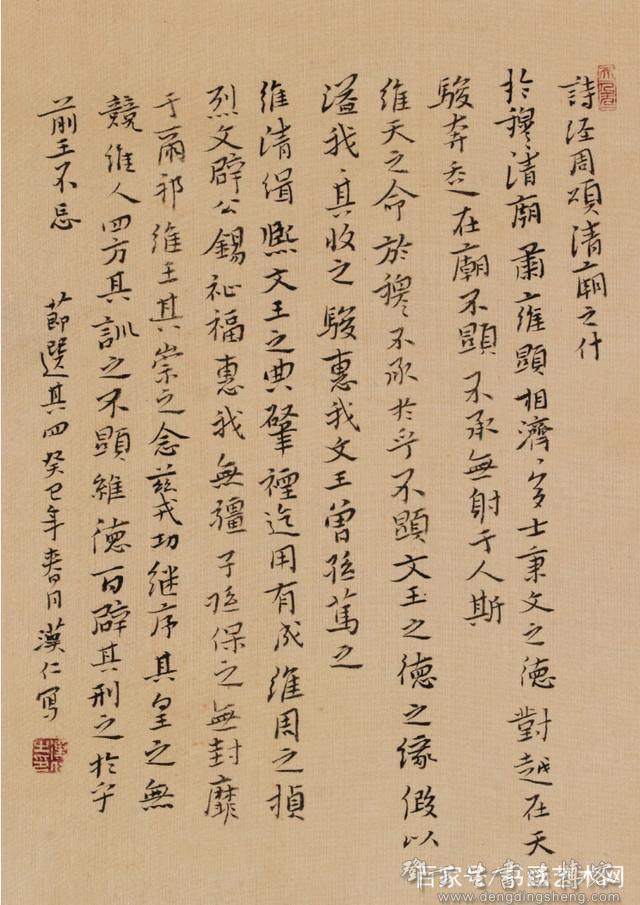 詩经周頌清廟之什
於穆清廟肅雍顯相濟〻多士秉文之德對越在天
駿奔走在廟不顯不承無射于人斯
維天之命於穆不承於乎不顯文王之德之緣假以
溢我〻其收之駿惠我文王曾孫篤之
維清缉熙文王之典肇禋迄用有成維周之禎
烈文辟公錫祉福惠我無疆子孫保之無封靡
于爾邦維王其崇之念兹戎功继序其皇之無
競維人四方其訓之不顯維德百辟其刑之於乎
前王不忘
節選其四癸巳年春月漢仁寫
百家号/书画艺术网
www.dengdingsheng.com